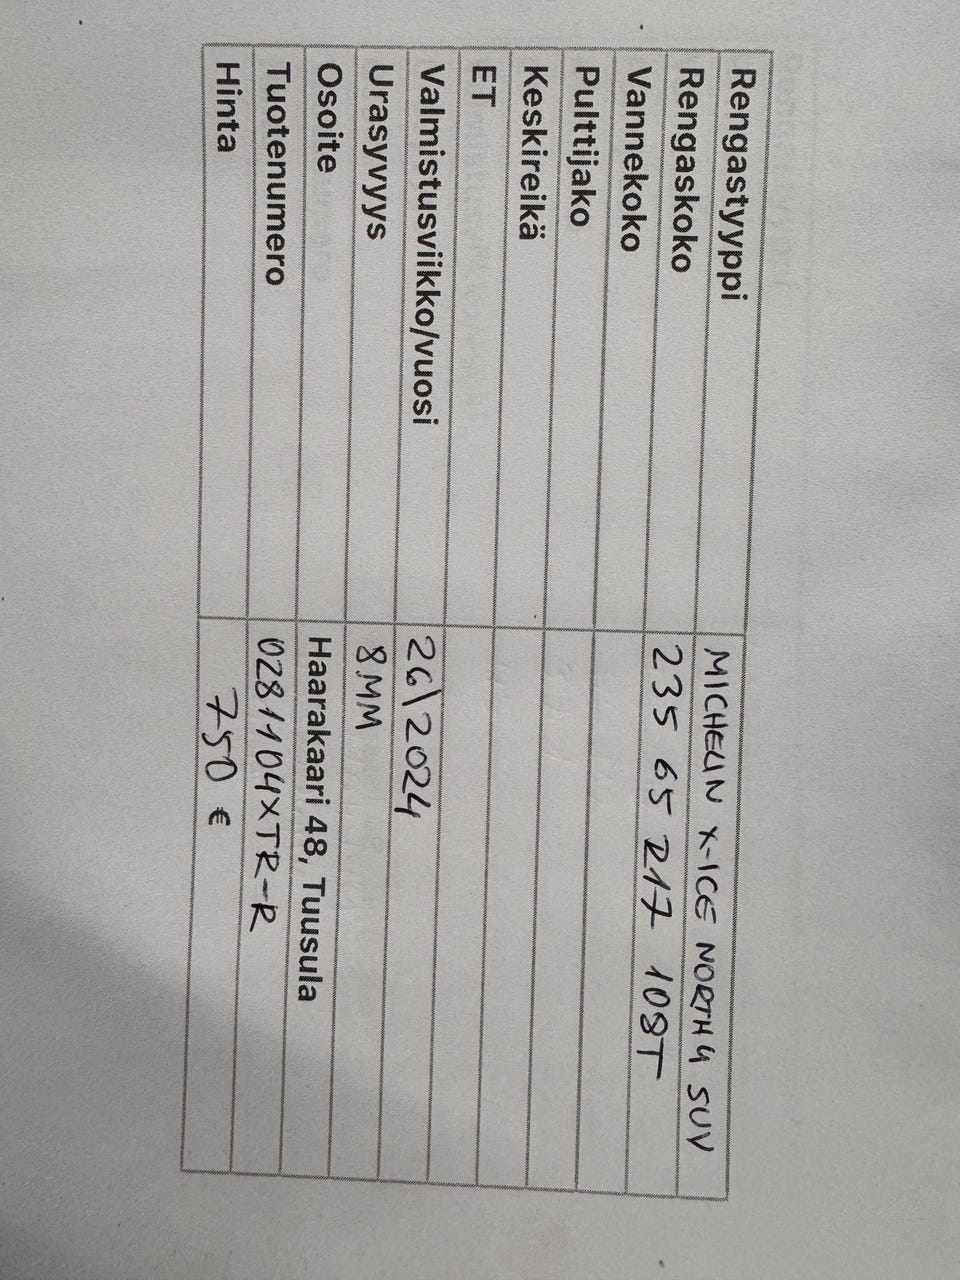 Rengastyyppi MICHELIN X-ICE NORTH 4 SUV
Rengaskoko 235 65 R17 108T
Vannekoko
Pulttijako
Keskireikä
ET
Valmistusviikko/vuosi 26\2024
Urasyvyys 8MM
Osoite Haarakaari 48, Tuusula
Tuotenumero 0281104XTR-R
Hinta 750 €